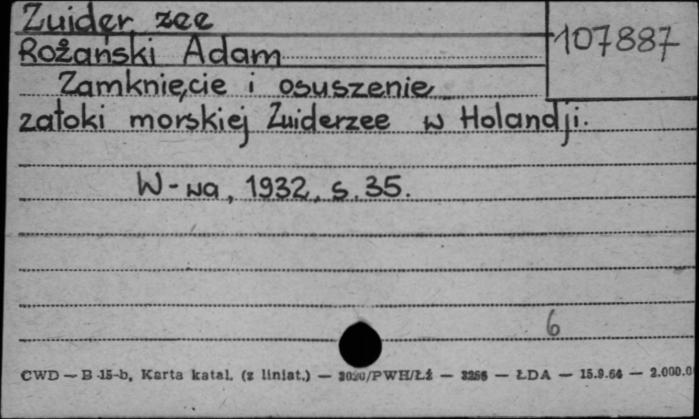 Zuider zee
107887
Rożański Adam
Zamknięcie i osuszenie
zatoki morskiej Zuiderzee w Holandji.
W-wa, 1932, s. 35.
6
CWD — B-15-b, Karta katal. (z liniat.) — /PWH/Łź — — ŁDA — 15.9.64 — 2.000.0